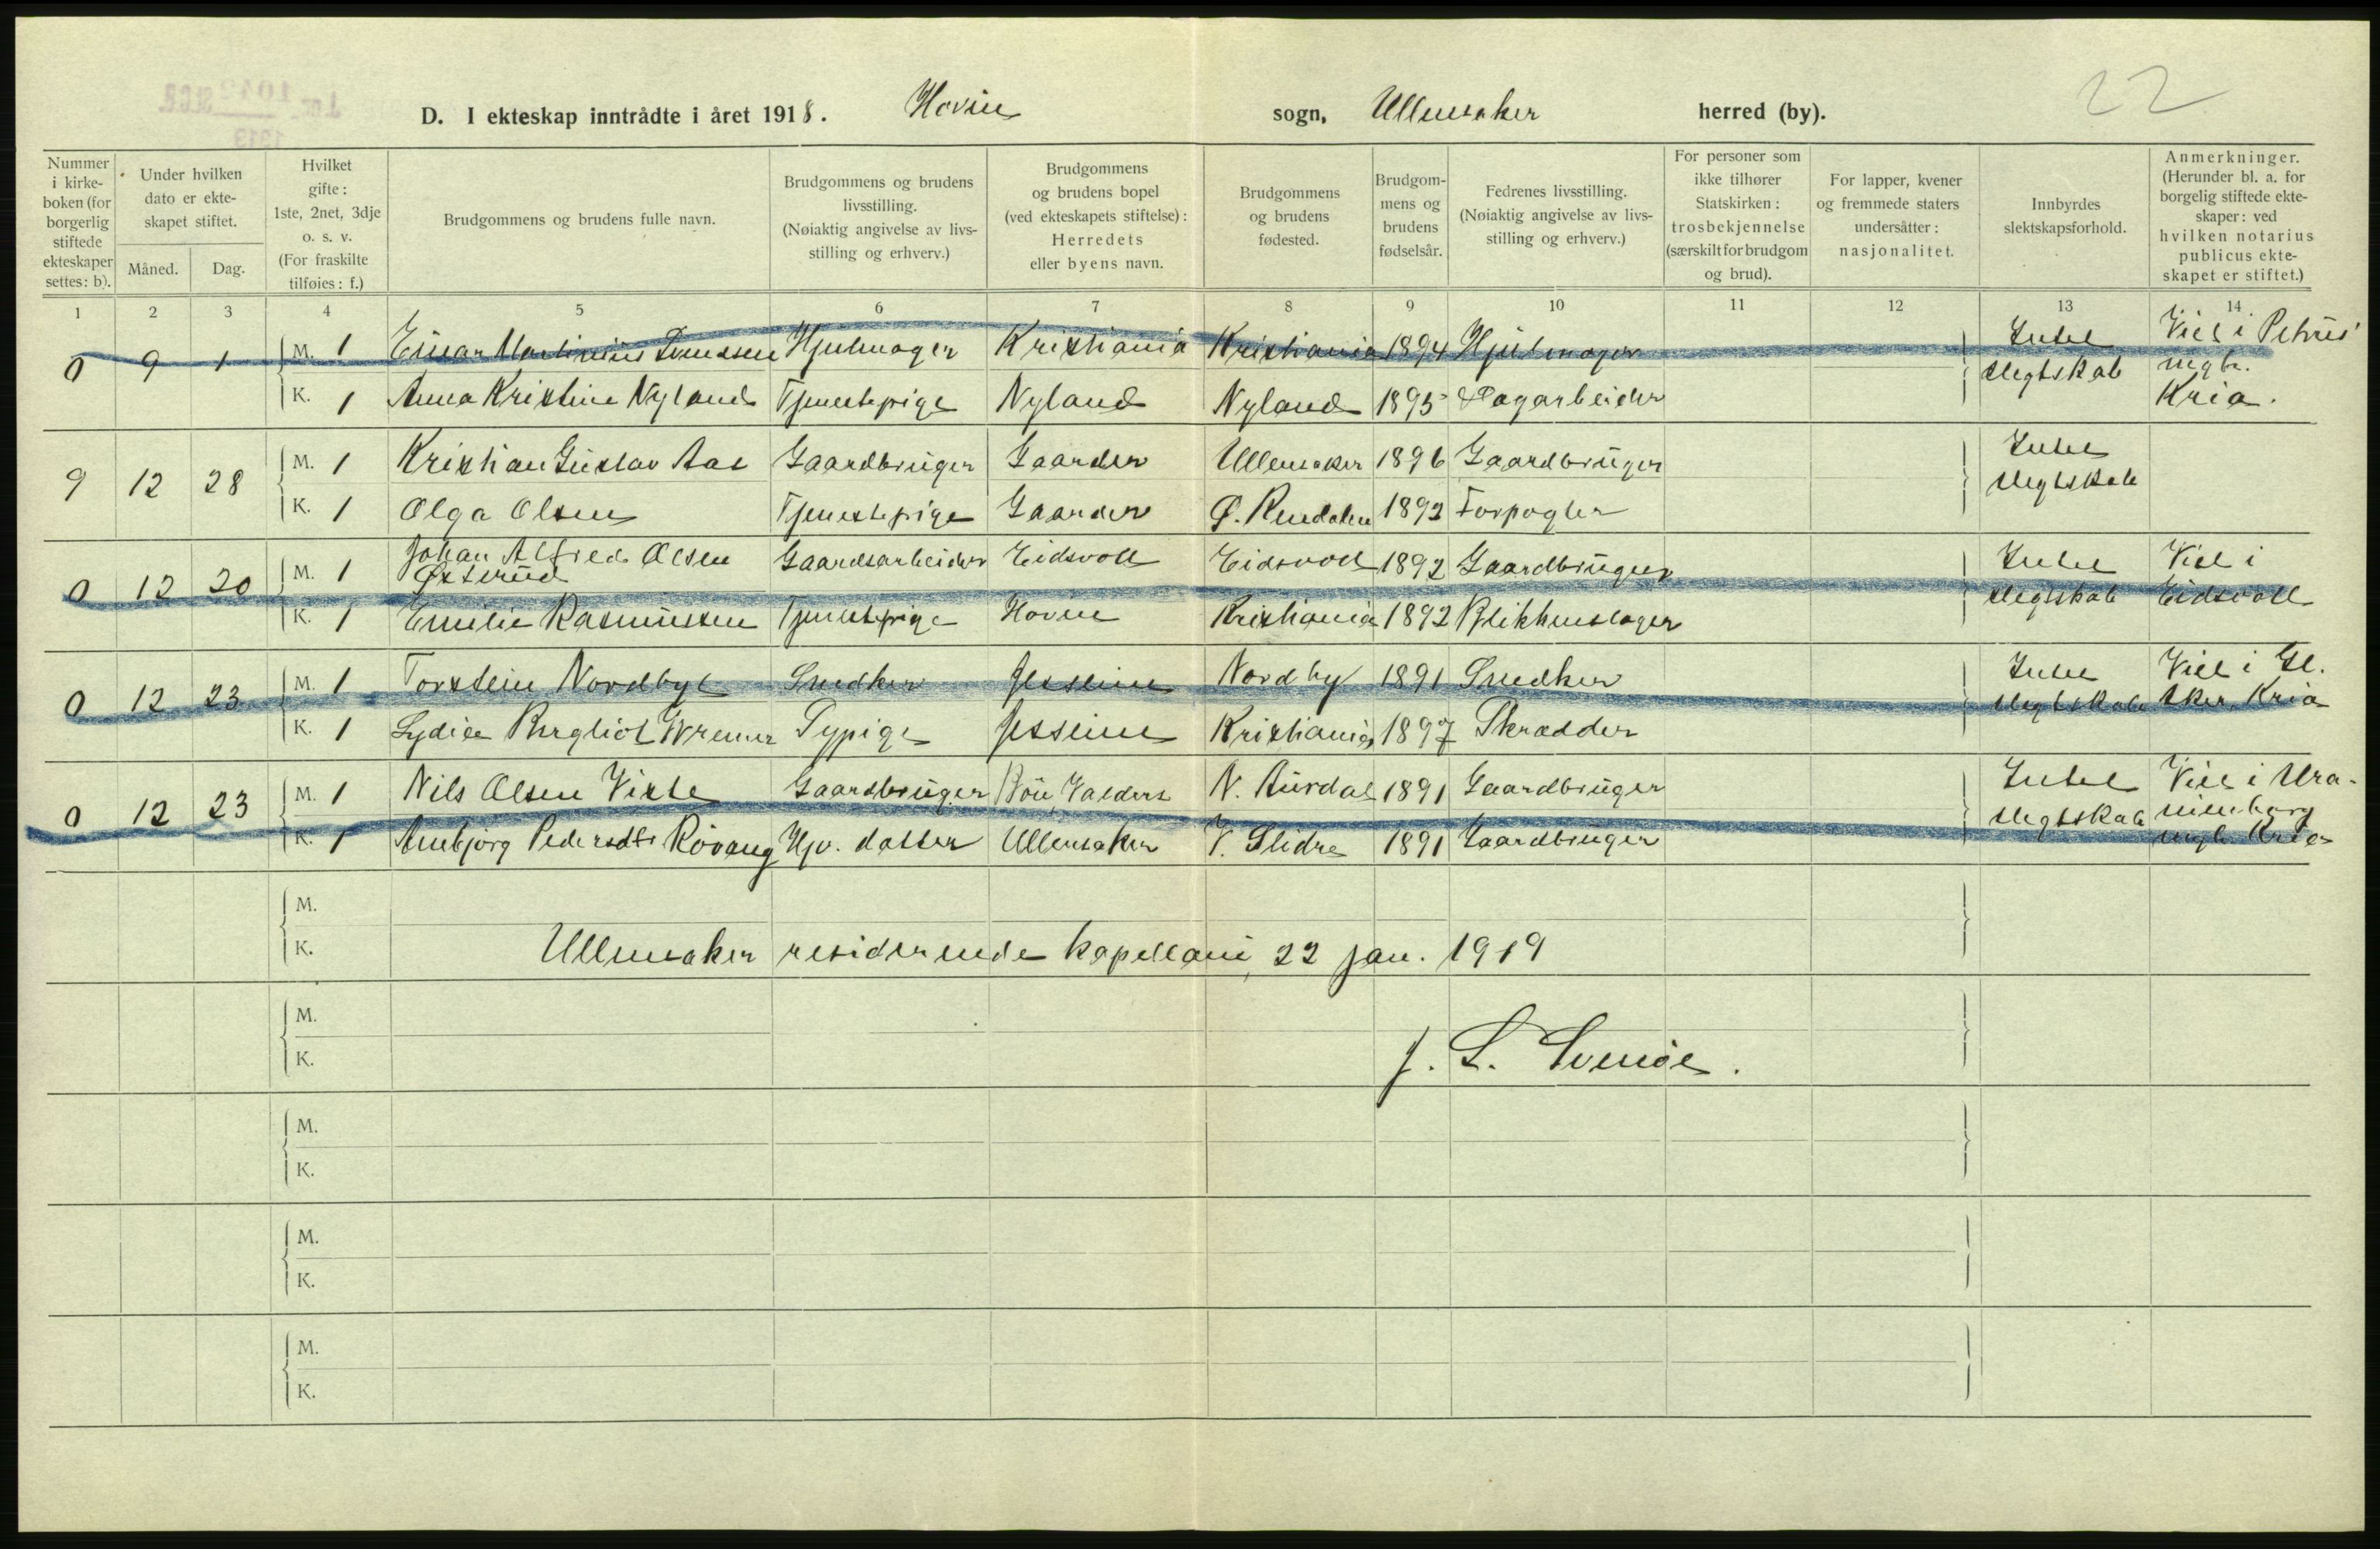 22
D. I ekteskap inntrådte i året 1918. Hovin sogn, Ullensaker herred (by).
Nummer i kirke-boken (for borgerlig stiftede ekteskaper settes: b).
Under hvilken dato er ekte-skapet stiftet.
Måned. Dag.
Hvilket gifte: 1ste, 2net, 3dje o. s. v. (For fraskilte tilføies: f.)
Brudgommens og brudens fulle navn.
Brudgommens og brudens livsstilling. (Nøiaktig angivelse av livs-stilling og erhverv.)
Brudgommens og brudens bopel (ved ekteskapets stiftelse): Herredets eller byens navn.
Brudgommens og brudens fødested.
Brudgom-mens og brudens fødselsår.
Fedrenes livsstilling. (Nøiaktig angivelse av livs-stilling og erhverv.)
For personer som ikke tilhører Statskirken: trosbekjennelse (særskilt for brudgom og brud).
For lapper, kvener og fremmede staters undersåtter: nasjonalitet.
Innbyrdes slektskapsforhold.
Anmerkninger. (Herunder bl. a. for borgelig stiftede ekte-skaper: ved hvilken notarius publicus ekte-skapet er stiftet.)
1 2 3 4 5 6 7 8 9 10 11 12 13 14
0 9 1 M. 1 Einar Martinius Svendsen Hjulmager Kristiania Kristiania 1894 Hjulmager Intet Slegtskab Viet i Petrus' mgh. Kria.
K. 1 Anna Kristine Nyland Tjenestepige Nyland Nyland 1895 Dagarbeider
9 12 28 M. 1 Kristian Gustav Aas Gaardbruger Gaarder Ullensaker 1896 Gaardbruger Intet Slegtskab
K. 1 Olga Olsen Tjenestepige Gaarder Ø. Rendalen 1892 Forpagter
0 12 20 M. 1 Johan Alfred Olsen Østerud Gaardsarbeider Eidsvoll Eidsvoll 1892 Gaardbruger Intet Slegtskab Viet i Eidsvoll
K. 1 Emilie Rasmussen Tjenestepige Hovin Kristiania 1892 Blikkenslager
0 12 23 M. 1 Torstein Nordbye Snedker Jesseim Nordby 1891 Snedker Intet Slegtskab Viet i Gl. Aker. Kria
K. 1 Lydia Bergliot Sypige Jesseim Kristiania 1897 Skrædder
0 12 23 M. 1 Nils Olsen Viste Gaardbruger Valders N. Aurdal 1891 Gaardbruger Intet Slegtskab Viet i Uranienborg mgh. Kria
K. 1 Annbjørg Pedersdtr Røvang Hjv. datter Ullensaker V. Slidre 1891 Gaardbruger
M.
K.
Ullensaker residerende kapellani, 22 jan. 1919
M.
K.
J. S. Svenøe.
M.
K.
M.
K.
M.
K.